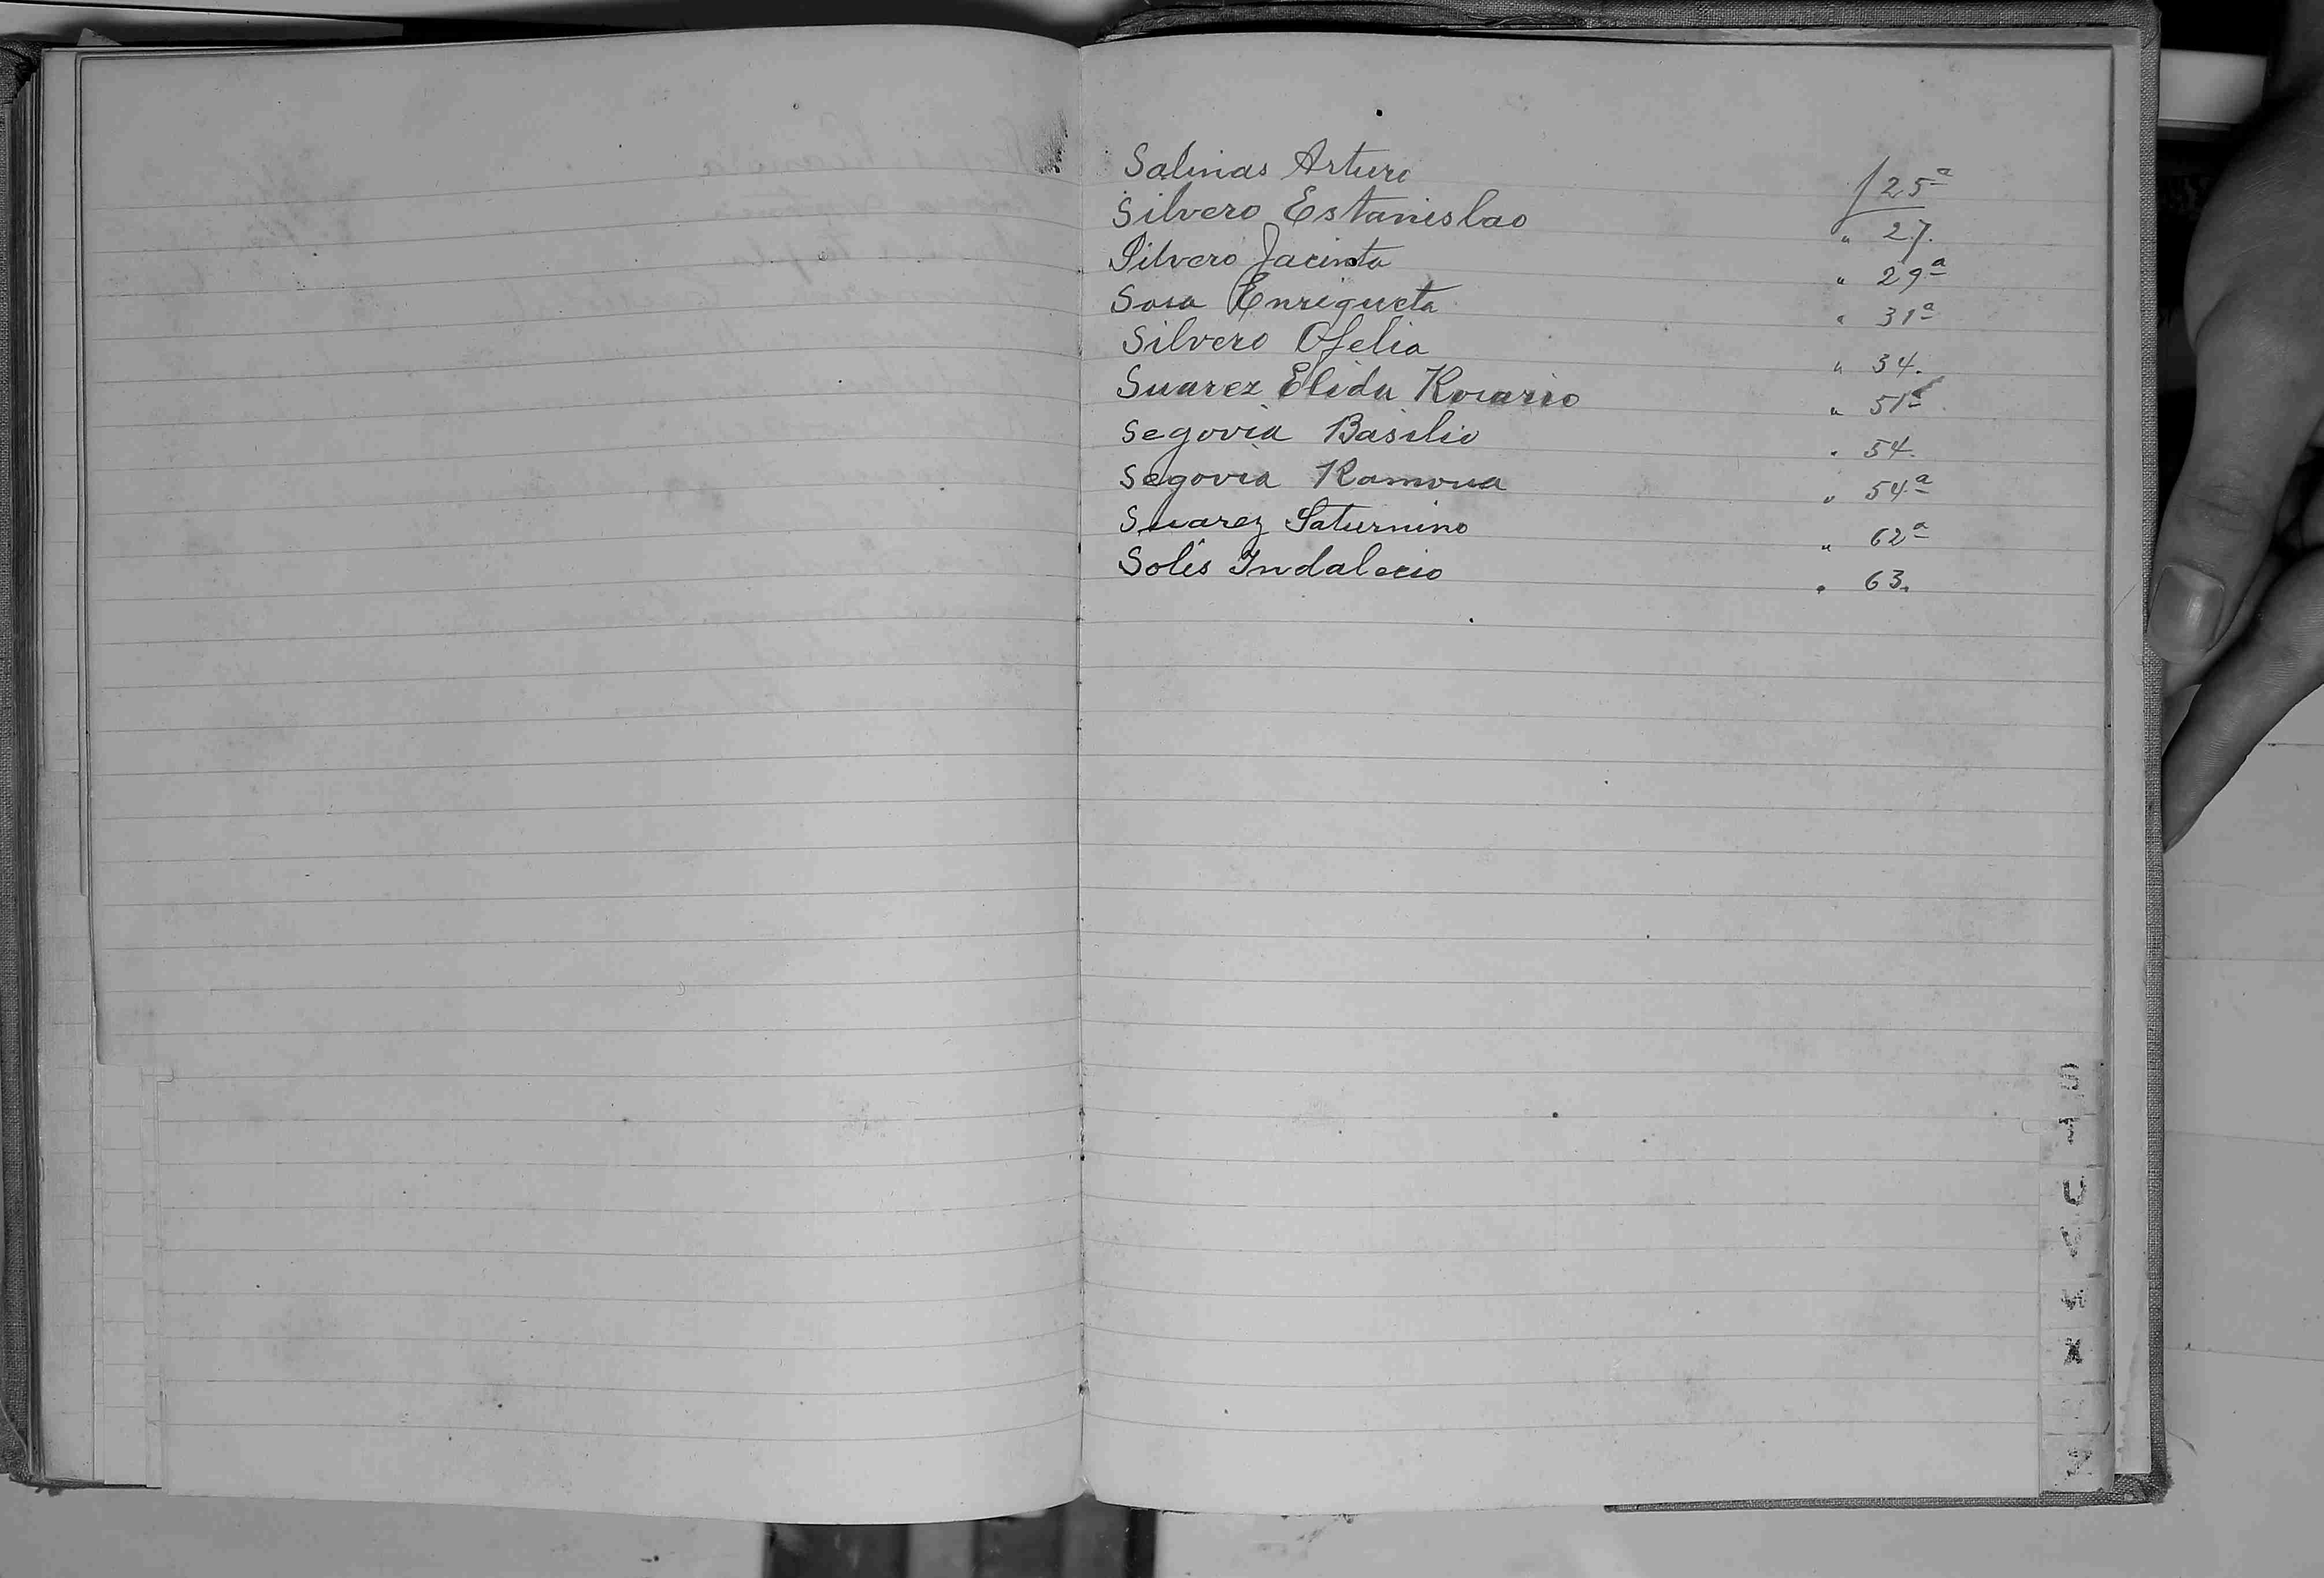 Salinas Arturo f 25ª
Silvero Estanislao " 27.
Silvero Jacinta " 29ª
Sosa Enriqueta " 31ª
Silvero Ofelia " 34.
Suarez Elida Rosario " 51ª
Segovia Basilio " 54.
Segovia Ramona " 54.ª
Suarez Saturnino " 62ª
Solis Indalecio " 63.
S
T
U
V
W
X
Z